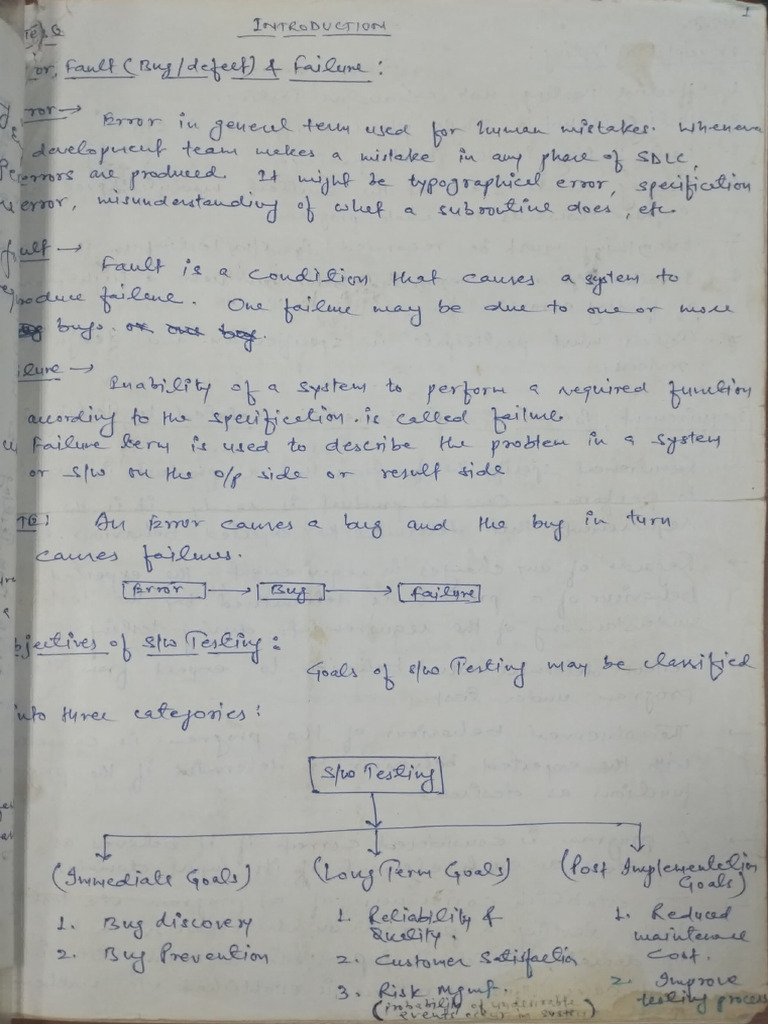 1
INTRODUCTION
or, Fault (Bug/defect) & Failure:
ror →
Error in general term used for human mistakes. Whenever
development team makes a mistake in any phase of SDLC,
errors are produced. It might be typographical error, specification
error, misunderstanding of what a subroutine does, etc.
ult →
Fault is a condition that causes a system to
produce failure. One failure may be due to one or more
bugs.
ilure →
Inability of a system to perform a required function
according to the specification is called failure.
Failure term is used to describe the problem in a system
or S/W on the o/p side or result side
TE: An Error causes a bug and the bug in turn
causes failures.
Error → Bug → Failure
bjectives of S/W Testing:
Goals of S/W Testing may be classified
into three categories:
S/W Testing
(Immediate Goals)
1. Bug discovery
2. Bug Prevention
(Long Term Goals)
1. Reliability &
Quality.
2. Customer Satisfaction
3. Risk Mgmt.
(probability of undesirable
events occur in system)
(Post Implementation
Goals)
1. Reduced
maintenance
Cost.
2. Improve
testing process